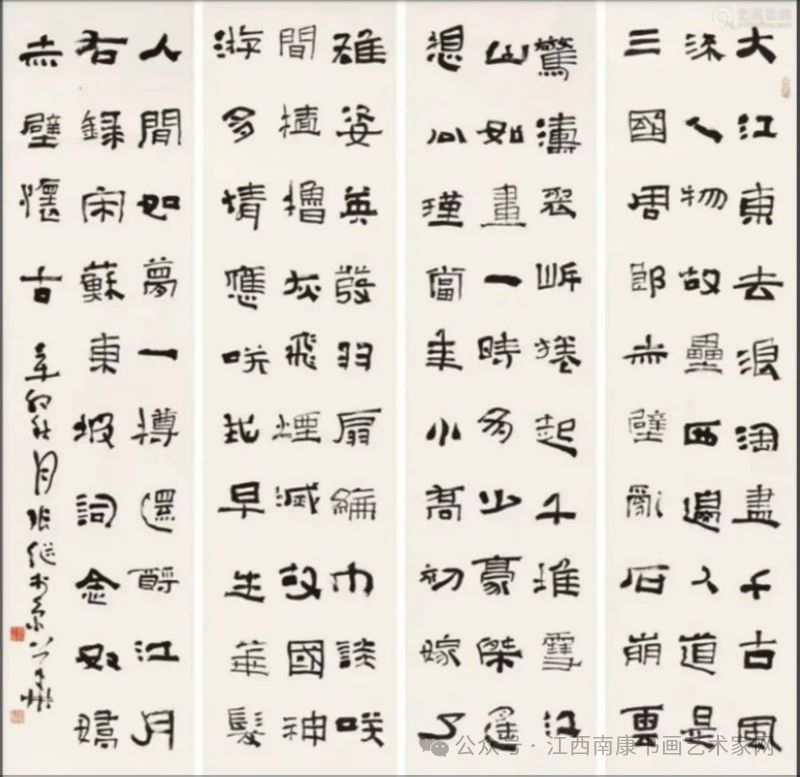 大江東去浪淘盡千古風
流人物故壘西邊人道是
三國周郎赤壁亂石崩雲
驚濤裂岸捲起千堆雪江
山如畫一時多少豪傑遙
想公瑾當年小喬初嫁了
雄姿英發羽扇綸巾談咲
間檣櫓灰飛煙滅故國神
游多情應咲我早生華髮
人間如夢一樽還酹江月
右錄宋蘇東坡詞念奴嬌
赤壁懷古 辛卯秋月張继书於京
公众号 · 江西南康书画艺术家网